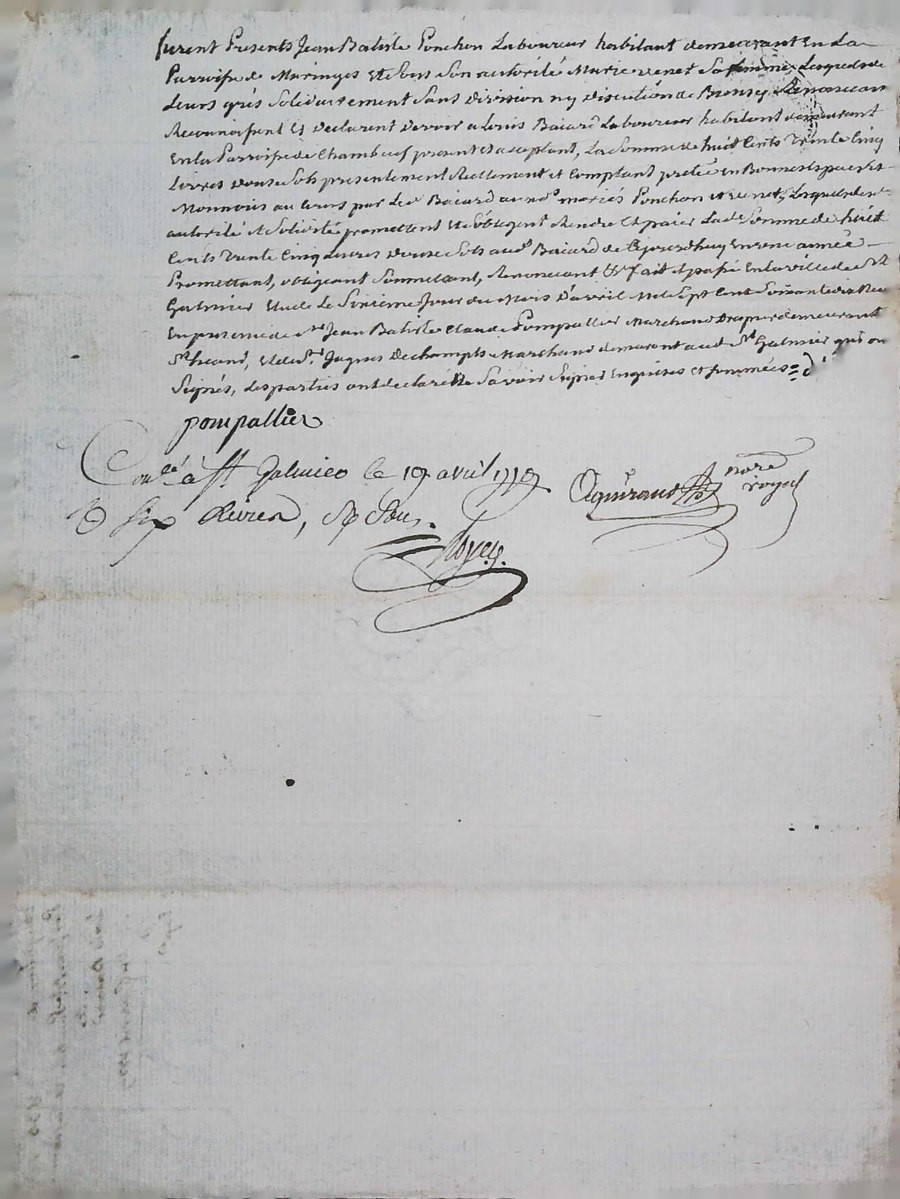 furent Presents Jean Batiste Ponchon Laboureur habitant demeurant En La
Parroisse de Maringes Et Sous Son autorité Marie venet Sa femme, Lesquels de
Leurs grés Solidairement Sans division ny discution de Biens y Renoncant
Reconoissent Et declarent devoir a Louis Baiard Laboureur habitant demeurant
En la Parroisse de Chambeuf present et aceptant, La Somme de huit Cents trente Cinq
Livres douse Sols presentement Reellement et Comptant pretée en Bonnes Especes Et
Monnois au Cours par Led. Baiard aud. mariés Ponchon et venet, Lesquels de
autorité et Solidité promettent et S'obligent Rendre Et paier Lade. Somme de huit
Cents trente Cinq Livres douse Sols aud. Baiard de Ajourdhuy En une année
Promettant, obligeant Soumettant, Renoncant &c. fait et passé En la ville de St.
Galmier Etude Le Sixieme Jour du Mois D'avril Mil Sept Cent Soixante dix Neuf
En presence de Sr. Jean Batiste Claude Pompallier Marchand Drapier demeurant
et de Sr. Jaques Dechampts Marchand demeurant aud. St. Galmier qui on
Signés, Les parties ont declaré Ne Savoir Signer Enquises et sommées
pompallier
Conlé. à St. Galmier le 19 avril 1779.
Six Livres, Sols.
nore
royal